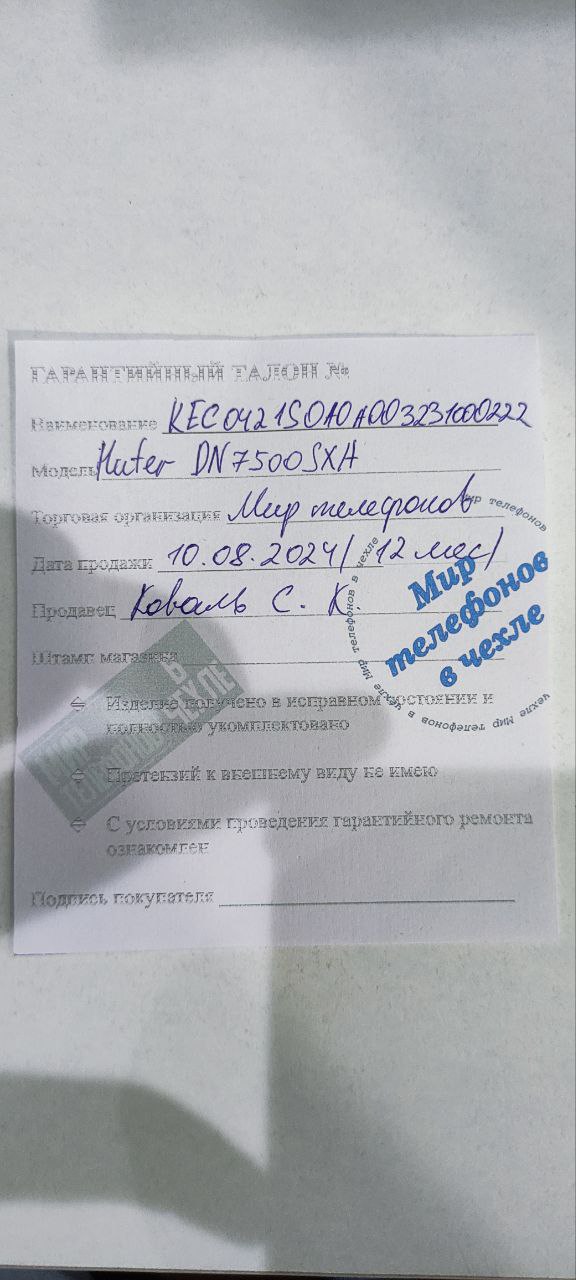 ГАРАНТИЙНЫЙ ТАЛОН №
Наименование KEC0421S0A0A003231000222
Модель Huter DN7500SXA
Торговая организация Мир телефонов
Дата продажи 10.08.2024/ 12 мес/
Продавец Коваль С. К.
Штамп магазина
Изделие получено в исправном состоянии и
полностью укомплектовано
Претензий к внешнему виду не имею
С условиями проведения гарантийного ремонта
ознакомлен
Подпись покупателя
Мир
телефонов
в чехле
Мир телефонов в чехле Мир телефонов в чехле Мир телефонов в чехле
МИР
ТЕЛЕФОНОВ
В
ЧЕХЛЕ